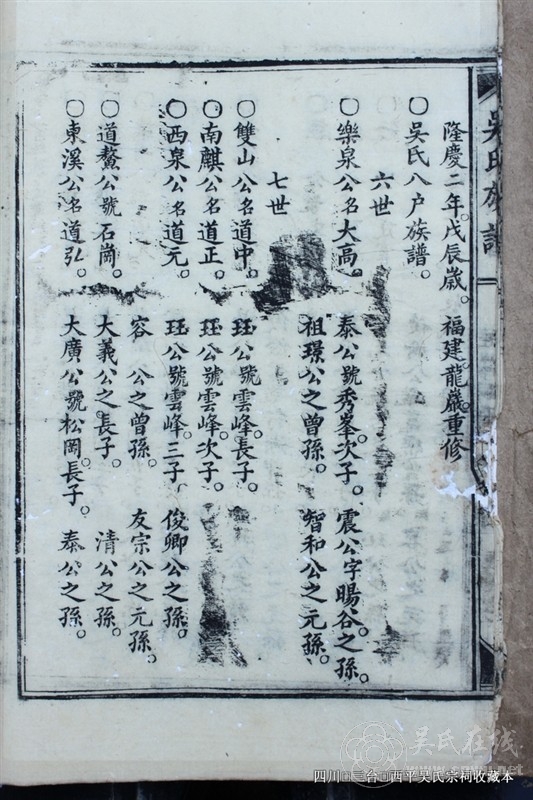 吳氏族譜
隆慶二年。戊辰歲。福建龍巖重修
〇吳氏八户族譜。
六世
〇樂泉公名大高。 泰公號秀峯。次子。 震公字暘谷之孫。
祖璟公之曾孫。 智和公之元孫。
七世
〇雙山公名道中。 珏公號雲峰。長子。
〇南麒公名道正。 珏公號雲峰。次子。
〇西泉公名道元。 珏公號雲峰。三子。 俊卿公之孫。
容 公之曾孫。 友宗公之元孫。
〇道鰲公號石崗。 大義公之長子。 清公之孫。
〇東溪公名道弘。 大廣公號松岡長子。 泰公之孫。
吴氏在线
四川□三台□西平吴氏宗祠收藏本